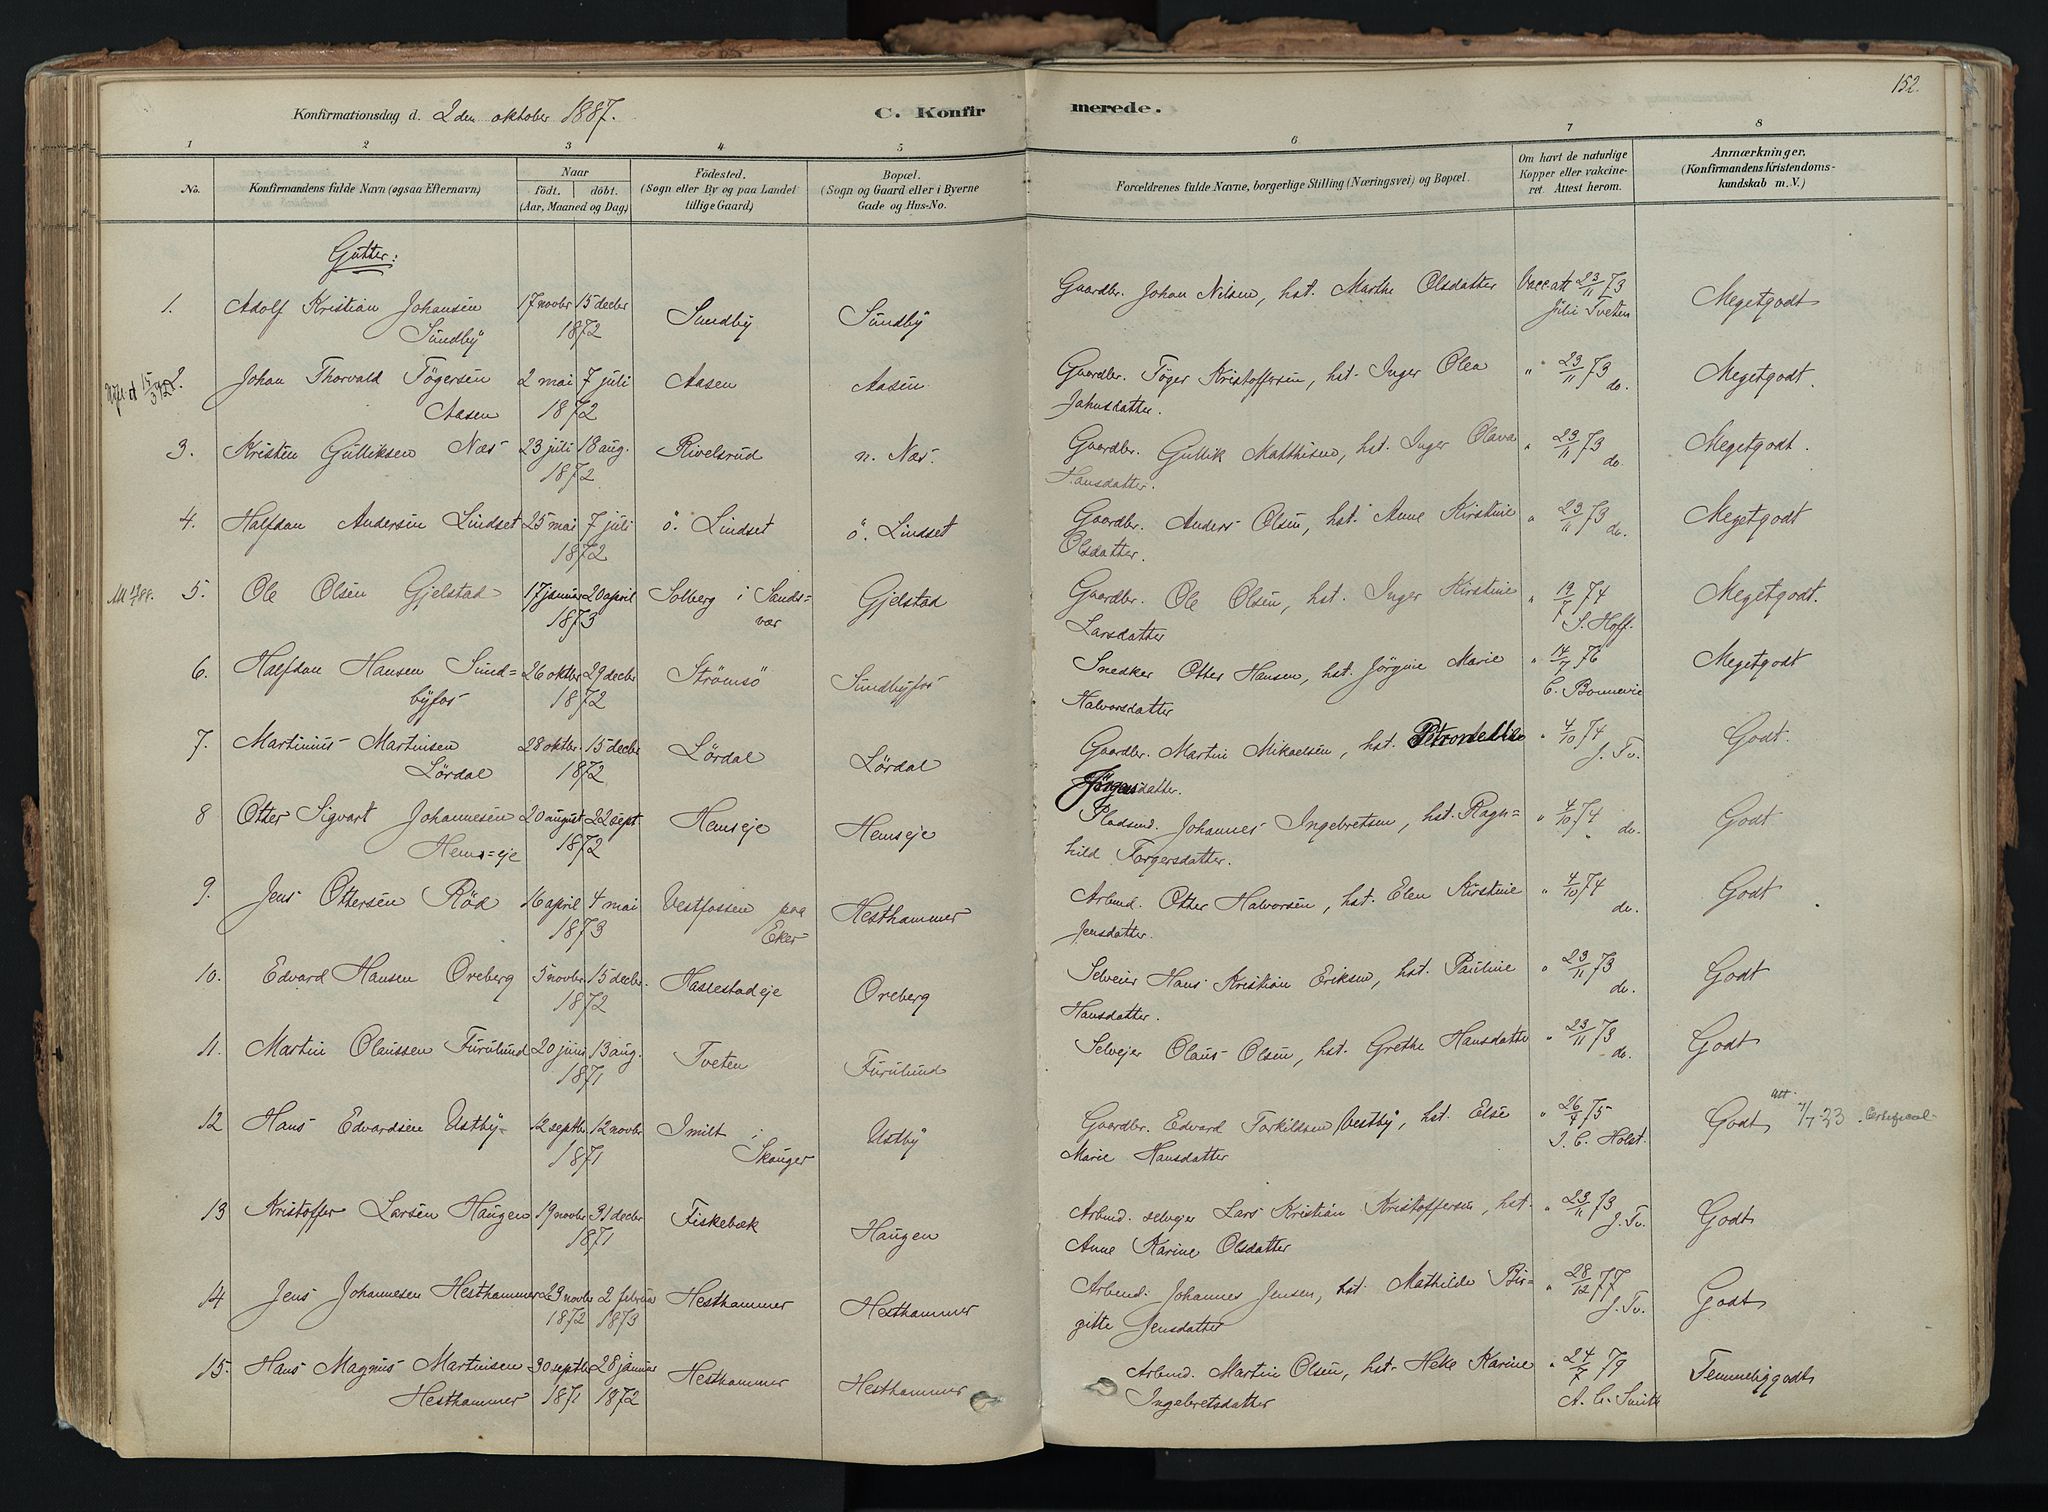 152.
Konfirmationsdag d. 2den oktober 1887. C. Konfirmerede.
1 2 3 4 5 6 7 8
No. Konfirmandens fulde Navn (ogsaa Efternavn) Naar født. døbt. (Aar, Maaned og Dag) Fødested. (Sogn eller By og paa Landet tillige Gaard) Bopæl. (Sogn og Gaard eller i Byerne Gade og Hus-No. Forældrenes fulde Navne, borgerlige Stilling (Næringsvei) og Bopæl. Om havt de naturlige Kopper eller vakcineret. Attest herom. Anmærkninger. (Konfirmandens Kristendomskundskab m. V.)
Gutter:
1. Adolf Kristian Johansen 17 novbr 15 decbr Sundby Sundby Gaardbr. Johan Nilsen, hst. Marthe Olsdatter Vaccatt 23/11 73 Megetgodt
Sundby 1872 Tveten
2. Johan Thorvald Tögersen 2 mai 7 juli Aasen Aasen Gaardbr. Töger Kristoffersen, hst. Inger Olea " 23/11 73 do. Megetgodt.
Aasen 1872 Jahnsdatter.
3. Kristen Gulliksen Næs 23 juli 18 aug. Rivelsrud n. Næs. Gaardbr. Gullik Matthisen, hst. Inger Olava " 23/11 73 do. Megetgodt.
1872 Hansdatter.
4. Halfdan Andersen Lindset 25 mai 7 juli ö. Lindset ö. Lindset Gaardbr. Anders Olsen, hst. Anne Kirstine " 23/11 73 do. Megetgodt
1872 Olsdatter.
5. Ole Olsen Gjelstad 17 januar 20 april Solberg i Sands= Gjelstad Gaardbr. Ole Olsen, hst. Inger Kirstine " 19/7 74 Megetgodt.
1873 vær Larsdatter S. Hoff.
6. Halfdan Hansen Sund= 26 oktbr 29 decbr Strömsö Sundbyfos Snedker Otter Hansen, hst. Jörgine Marie " 14/7 76 Megetgodt
byfos 1872 Halvorsdatter C. Bonnevie
7. Martinius Martinsen 28 oktbr. 15 decbr Lördal Lördal Gaardbr. Martin Mikaelsen, hst. Petronelle " 4/10 74 Godt.
Lördal 1872 Jörgensdatter. J. Tv.
8 Otter Sigvart Johannesen 20 august 22 sept. Hemseje Hemseje Pladsmd. Johannes Ingebretsen, hst. Ragn= " 4/10 74 do. Godt
Hems=eje 1872 hild Torgersdatter.
9. Jens Ottersen Röd 16 april 4 mai Vestfossen paa Hesthammer Arbmd. Otter Halvorsen, hst. Elen Kirstine " 4/10 74 do. Godt
1873 Eker Jensdatter.
10. Edvard Hansen Oreberg 5 novbr 15 decbr. Haslestadeje Oreberg Selveier Hans Kristian Eriksen, hst. Pauline " 23/11 73 do. Godt
1872 Hansdatter.
11. Martin Olaussen Furulund 20 juni 13 aug. Tveten Furulund Selvejer Olaus Olsen, hst. Grethe Hansdatter " 23/11 73 do. Godt
1871
12 Hans Edvardsen Ustby 12 septbr 12 novbr Imilt i Ustby Gaardbr. Edvard Torkildsen Vestby, hst. Else " 26/7 75 Godt Att. 7/7 23 Certificat
1871 Skouger Marie Hansdatter J. C. Holst.
13 Kristoffer Larsen Haugen 19 novbr 31 decbr Fiskebæk Haugen Arbmd. selvejer Lars Kristian Kristoffersen, hst. " 23/11 73 Godt
1871 Anne Karine Olsdatter J. Tv.
14 Jens Johannesen Hesthammer 23 novbr 2 februar Hesthammer Hesthammer Arbmd. Johannes Jensen, hst. Mathilde Bir= " 28/12 77 Godt
1872 1873 gitte Jensdatter J. Tv.
15. Hans Magnus Martinsen 30 septbr 28 januar Hesthammer Hesthammer Arbmd. Martin Olsen, hst. Heke Karine " 24/7 79 Temmeliggodt
Hesthammer 1871 1872 Ingebretsdatter A. C. Smith